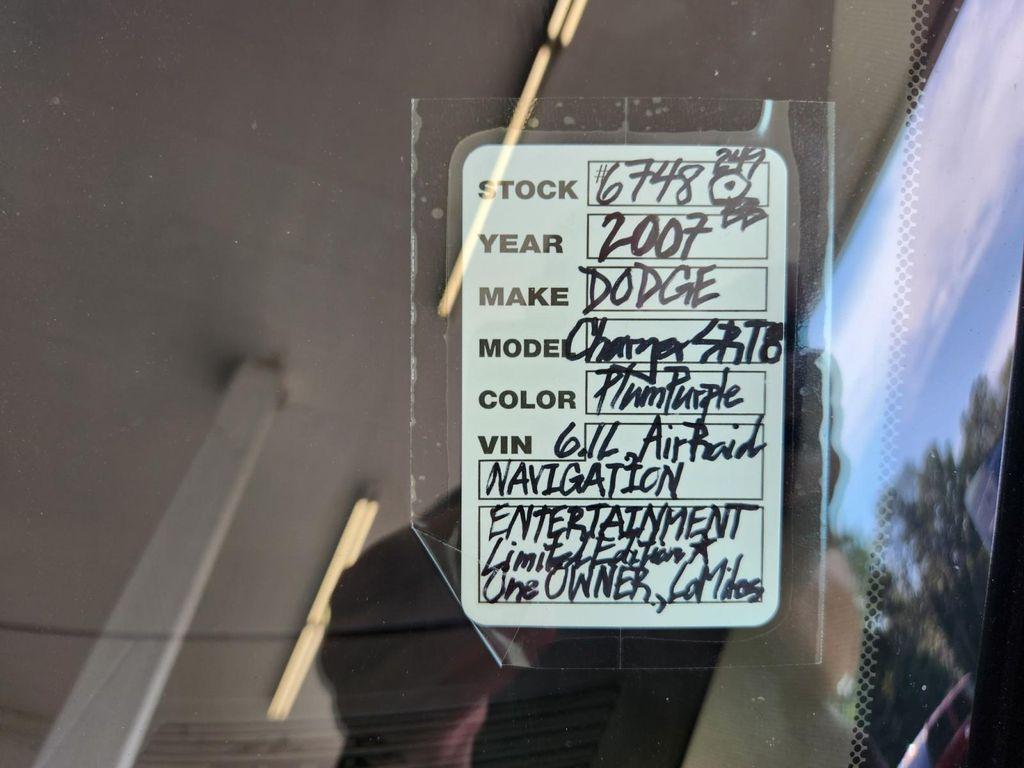 STOCK #6748 249
YEAR 2007
MAKE DODGE
MODEL Charger SRT8
COLOR Plum Purple
VIN 6.1L, Air Raid
NAVIGATION
ENTERTAINMENT
Limited Edition*
One OWNER, LoMiles